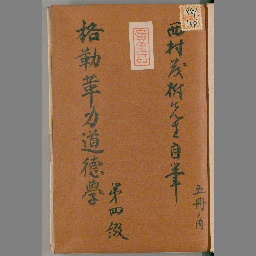 西村茂樹先生自筆
五冊ノ内
格勒革力道徳學
第四級
貴重品